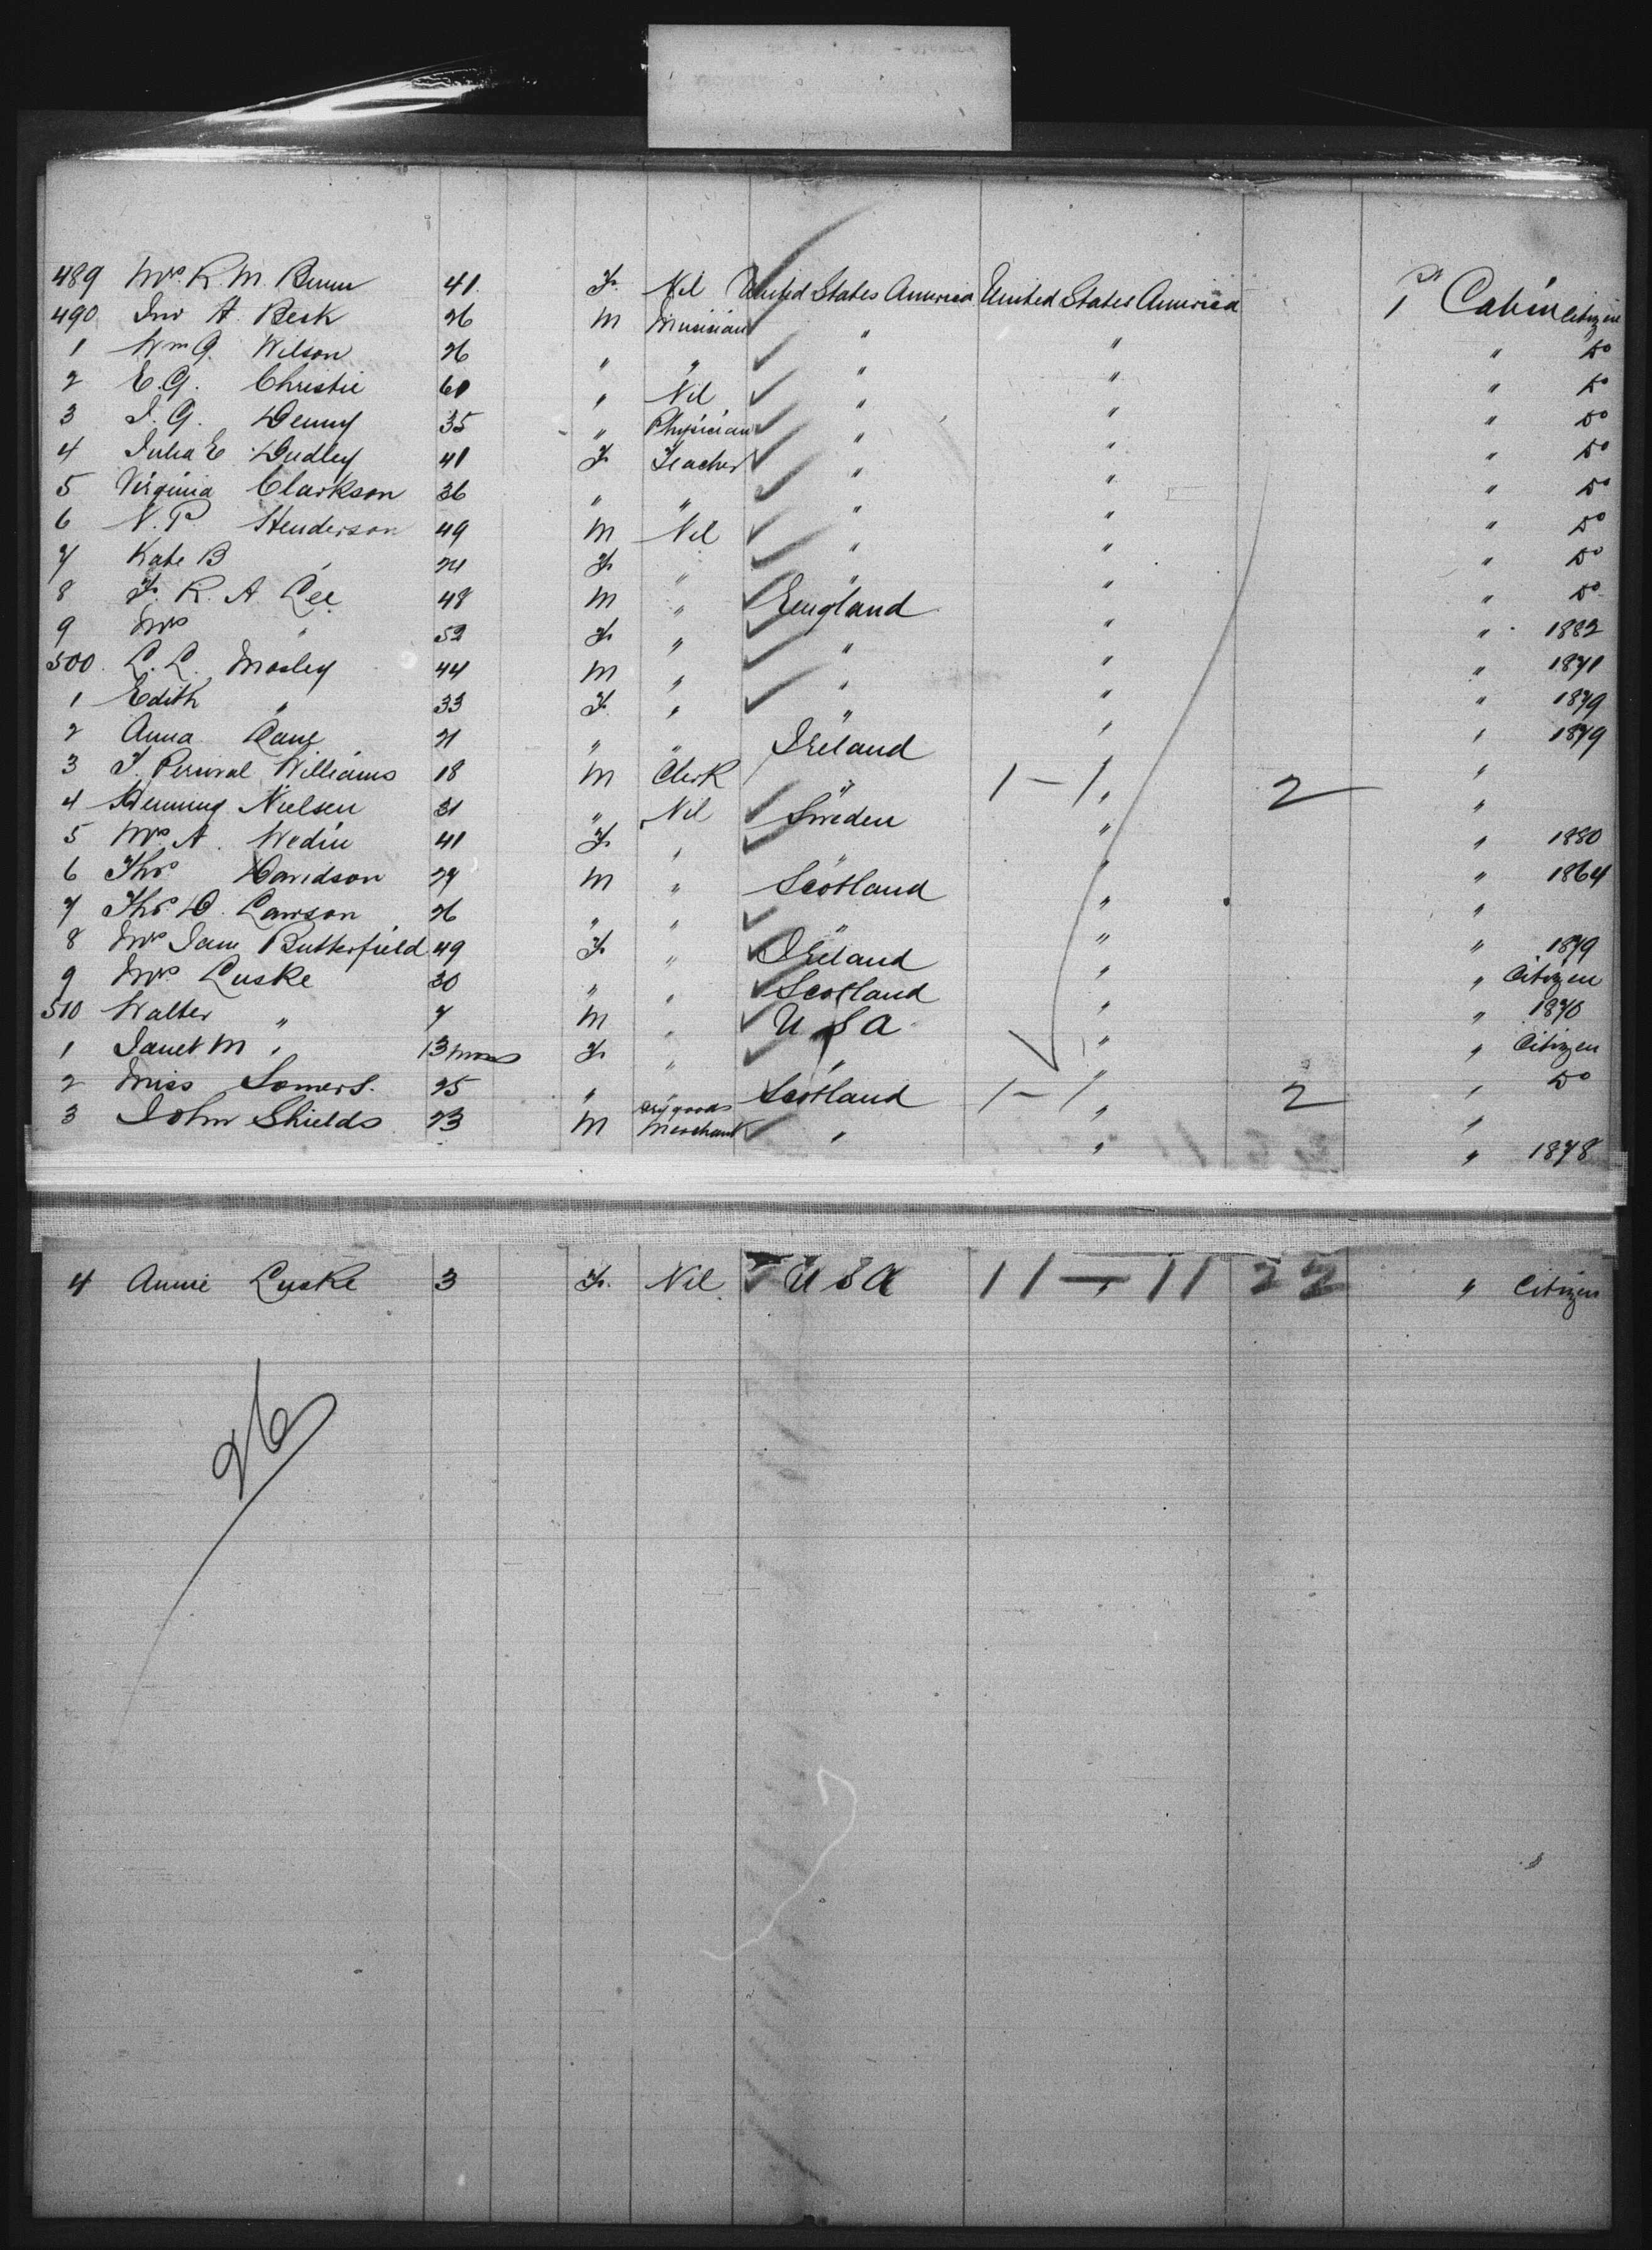 489 Mrs R. M. Bunn 41 F. Nil United States America United States America 1st Cabin Citizen
490 Jno A. Besk 26 M Musician " " " Do
1 Wm G. Wilson 26 " " " " " Do
2 E. G. Christie 60 " Nil " " " Do
3 J. G. Denny 35 " Physician " " " Do
4 Julia E Dudley 41 F Teacher " " " Do
5 Virginia Clarkson 36 " " " " " Do
6 N. P Henderson 49 M Nil " " " Do
7 Kate B " 21 F. " " " " Do
8 F. R. A. Lee 48 M " England " " 1882
9 Mrs " 52 F. " " " " 1871
500. L. L. Mosley 44 M " " " " 1879
1 Edith " 33 F. " " " " 1879
2 Anna Cane 21 " " Ireland " "
3 J. Percival Williams 18 M Clerk " 1 – 1 " 2 "
4 Henning Nielsen 31 " Nil Sweden " " 1880
5 Mrs A. Wedin 41 F. " " " " 1864
6 Thos Davidson 27 M " Scotland " "
7 Thos. D. Lawson 26 " " " " " 1879
8 Mrs Jane Butterfield 49 F " Ireland " " Citizen
9 Mrs Luske 30 " " Scotland " " 1870
510 Walter " 7 M " U S A " " Citizen
1 Janet M " 13 mos F " " " " Do
2 Miss Somers. 25 " " Scotland 1 – 1 " 2 "
3 John Shields 23 M Dry goods Merchant " " " 1878
4 Annie Luske 3 F. Nil U S A 11 – " 11 22 " Citizen
26